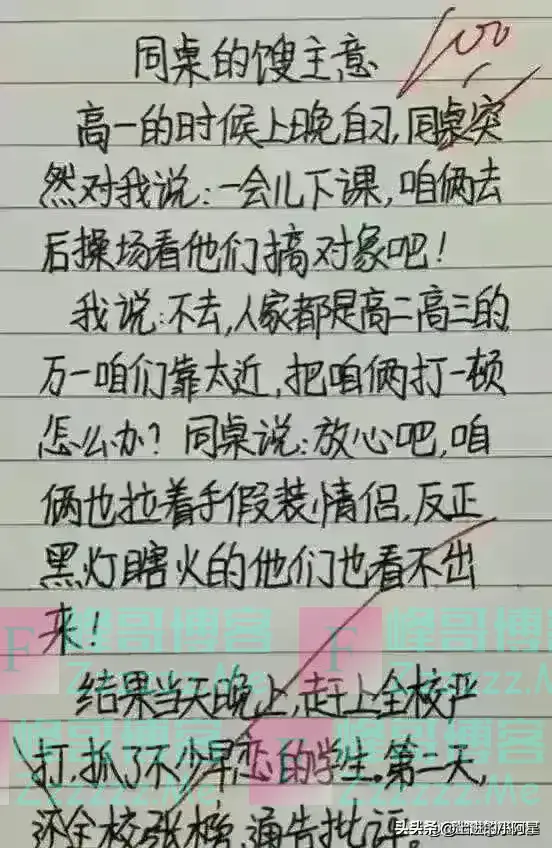 100
同桌的馊主意
高一的时候上晚自习,同桌突
然对我说:一会儿下课,咱俩去
后操场看他们搞对象吧!
我说:不去,人家都是高二高三的,
万一咱们靠太近,把咱俩打一顿
怎么办?同桌说:放心吧,咱
俩也拉着手假装情侣,反正
黑灯瞎火的他们也看不出
来!
F 峰哥博客
Zzzzzz.Me
F 峰哥博客
Zzzzzz.Me
结果当天晚上,赶上全校严
打,抓了不少早恋的学生。第二天,
峰哥博客
Zzzzzz.Me
峰哥博客
Zzzzzz.Me
还全校张榜,通告批评。
头条